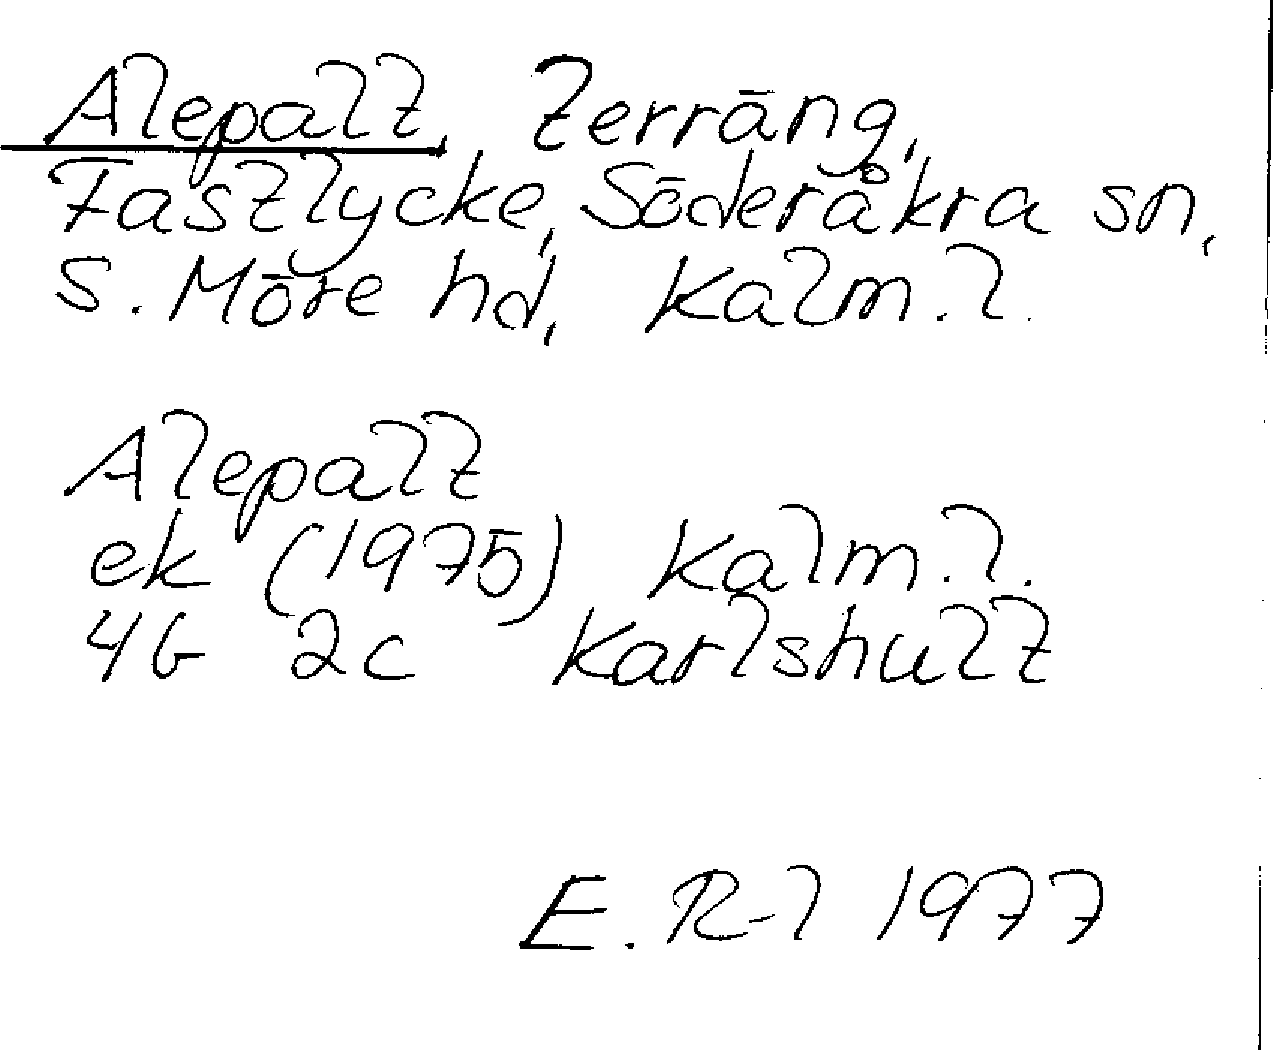 Alepalt, terräng,
Fastlycke, Söderåkra sn,
S. Möre hd, Kalm. l.
Alepalt
ek (1975) Kalm. l.
4G 2c Karlshult
E. R-l 1977